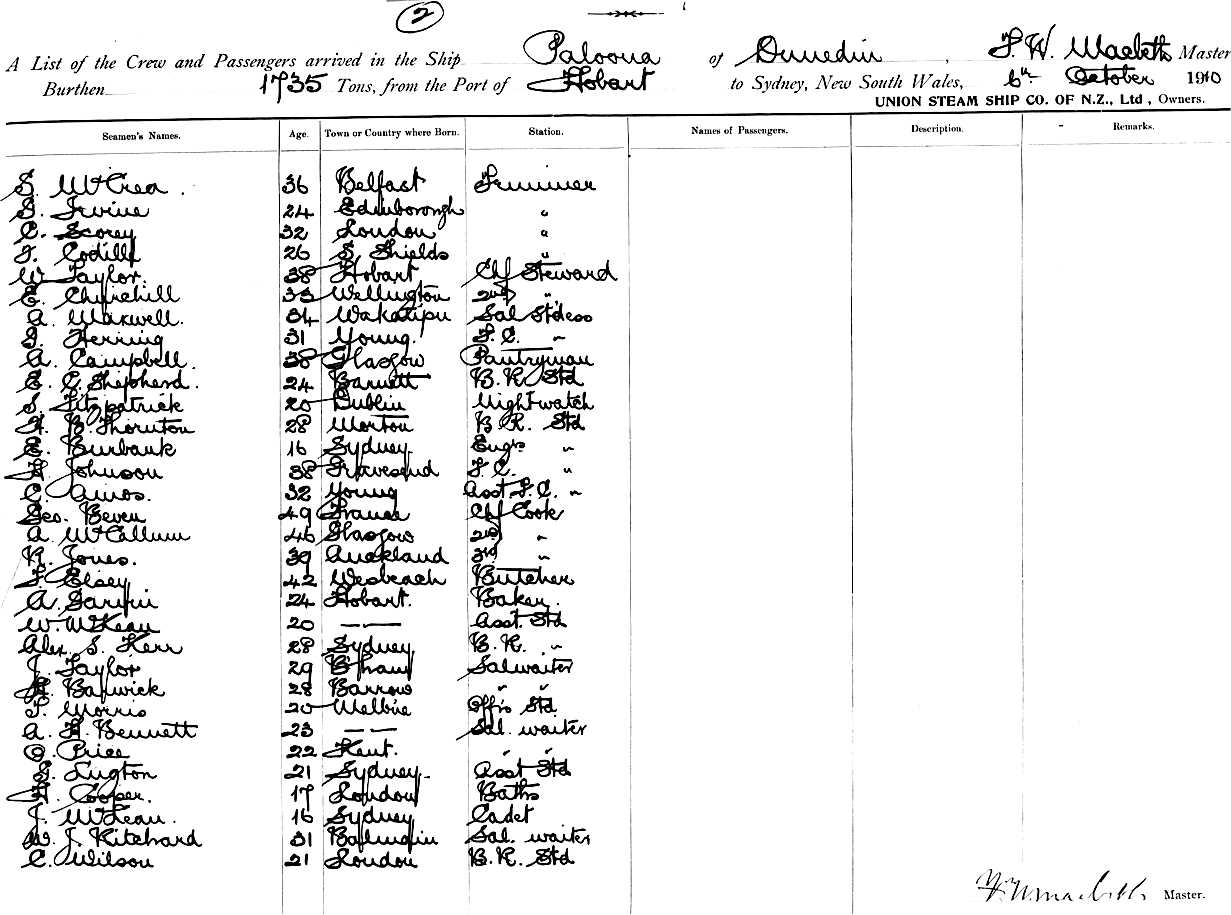 2
A List of the Crew and Passengers arrived in the Ship Paloona of Dunedin, Master
Burthen 1735 Tons, from the Port of Hobart to Sydney, New South Wales, 6th October 1910
UNION STEAM SHIP CO. OF N.Z., Ltd, Owners.
Seamen's Names. Age. Town or Country where Born. Station. Names of Passengers. Description. Remarks.
S. McCrea. 36 Belfast Trimmer
Irvine 24 Edinborough "
C. Scorey 32 London "
26 S. Shields "
W. Taylor. 38 Hobart Chf Steward
E. Churchill 33 Wellington 2nd "
A. Maxwell. 34 Wakatipu Sal Stdess
Herring 31 Young. F.C. "
A. Campbell. 38 Glasgow Pantryman
E. C. Shepherd. 24 Barnett B.R. Std
S. Fitzpatrick 20 Dublin Nightwatch
H. B. Thornton 28 Morton B.R. Std
E. Burbank 16 Sydney Engrs "
H. Johnson 38 Gravesend F.C. "
C. Amos. 32 Young Asst F.C. "
Geo. Beven 49 France Chf Cook
A. McCallum 46 Glasgow 2nd "
R. Jones. 39 Auckland 3rd "
Elsey 42 Wesbeach Butcher
A. 24 Hobart. Baker
W. McKean 20 — — Asst. Std
Alex. S. Kerr 28 Sydney B.R. "
J. Taylor 29 B'ham Salwaiter
28 Barrow " "
Morris 20 Melbne Offrs Std.
A. H. Bennett 23 — — Sal. waiter
O. Price 22 Kent. " "
Lugton 21 Sydney. Asst Std
H. Cooper. 17 London Baths
J. McLean. 16 Sydney Cadet
W. J. Kitchard 31 Sal. waiter
C. Wilson 21 London B.R. Std
Master.